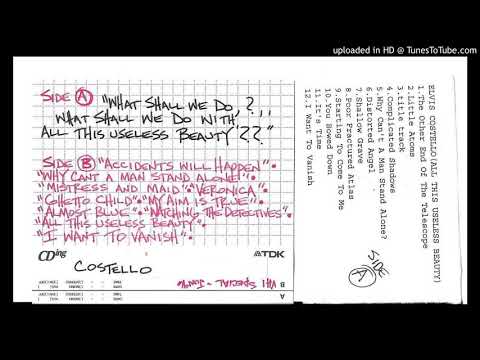 uploaded in HD @ TunesToTube.com
SIDE A "WHAT SHALL WE DO, ?,,,
WHAT SHALL WE DO WITH,
ALL THIS USELESS BEAUTY"??"
SIDE B "ACCIDENTS WILL HAPPEN".
"WHY CANT A MAN STAND ALONE".
"MISTRESS AND MAID". "VERONICA".
"GHETTO CHILD". "MY AIM IS TRUE".
"ALMOST BLUE". "WATCHING THE DETECTIVES".
"ALL THIS USELESS BEAUTY".
"I WANT TO VANISH".
CDing
TDK
COSTELLO
B VH1 SPECIAL - JUN 96
A
ELVIS COSTELLO(ALL THIS USELESS BEAUTY)
1.The Other End Of The Telescope
2.Little Atoms
3.title track
4.Complicated Shadows
5.Why Can't A Man Stand Alone?
6.Distorted Angel
7.Shallow Grave
8.Poor Fractured Atlas
9.Starting To Come To Me
10.You Bowed Down
11.It's Time
12.I Want To Vanish
SIDE
A